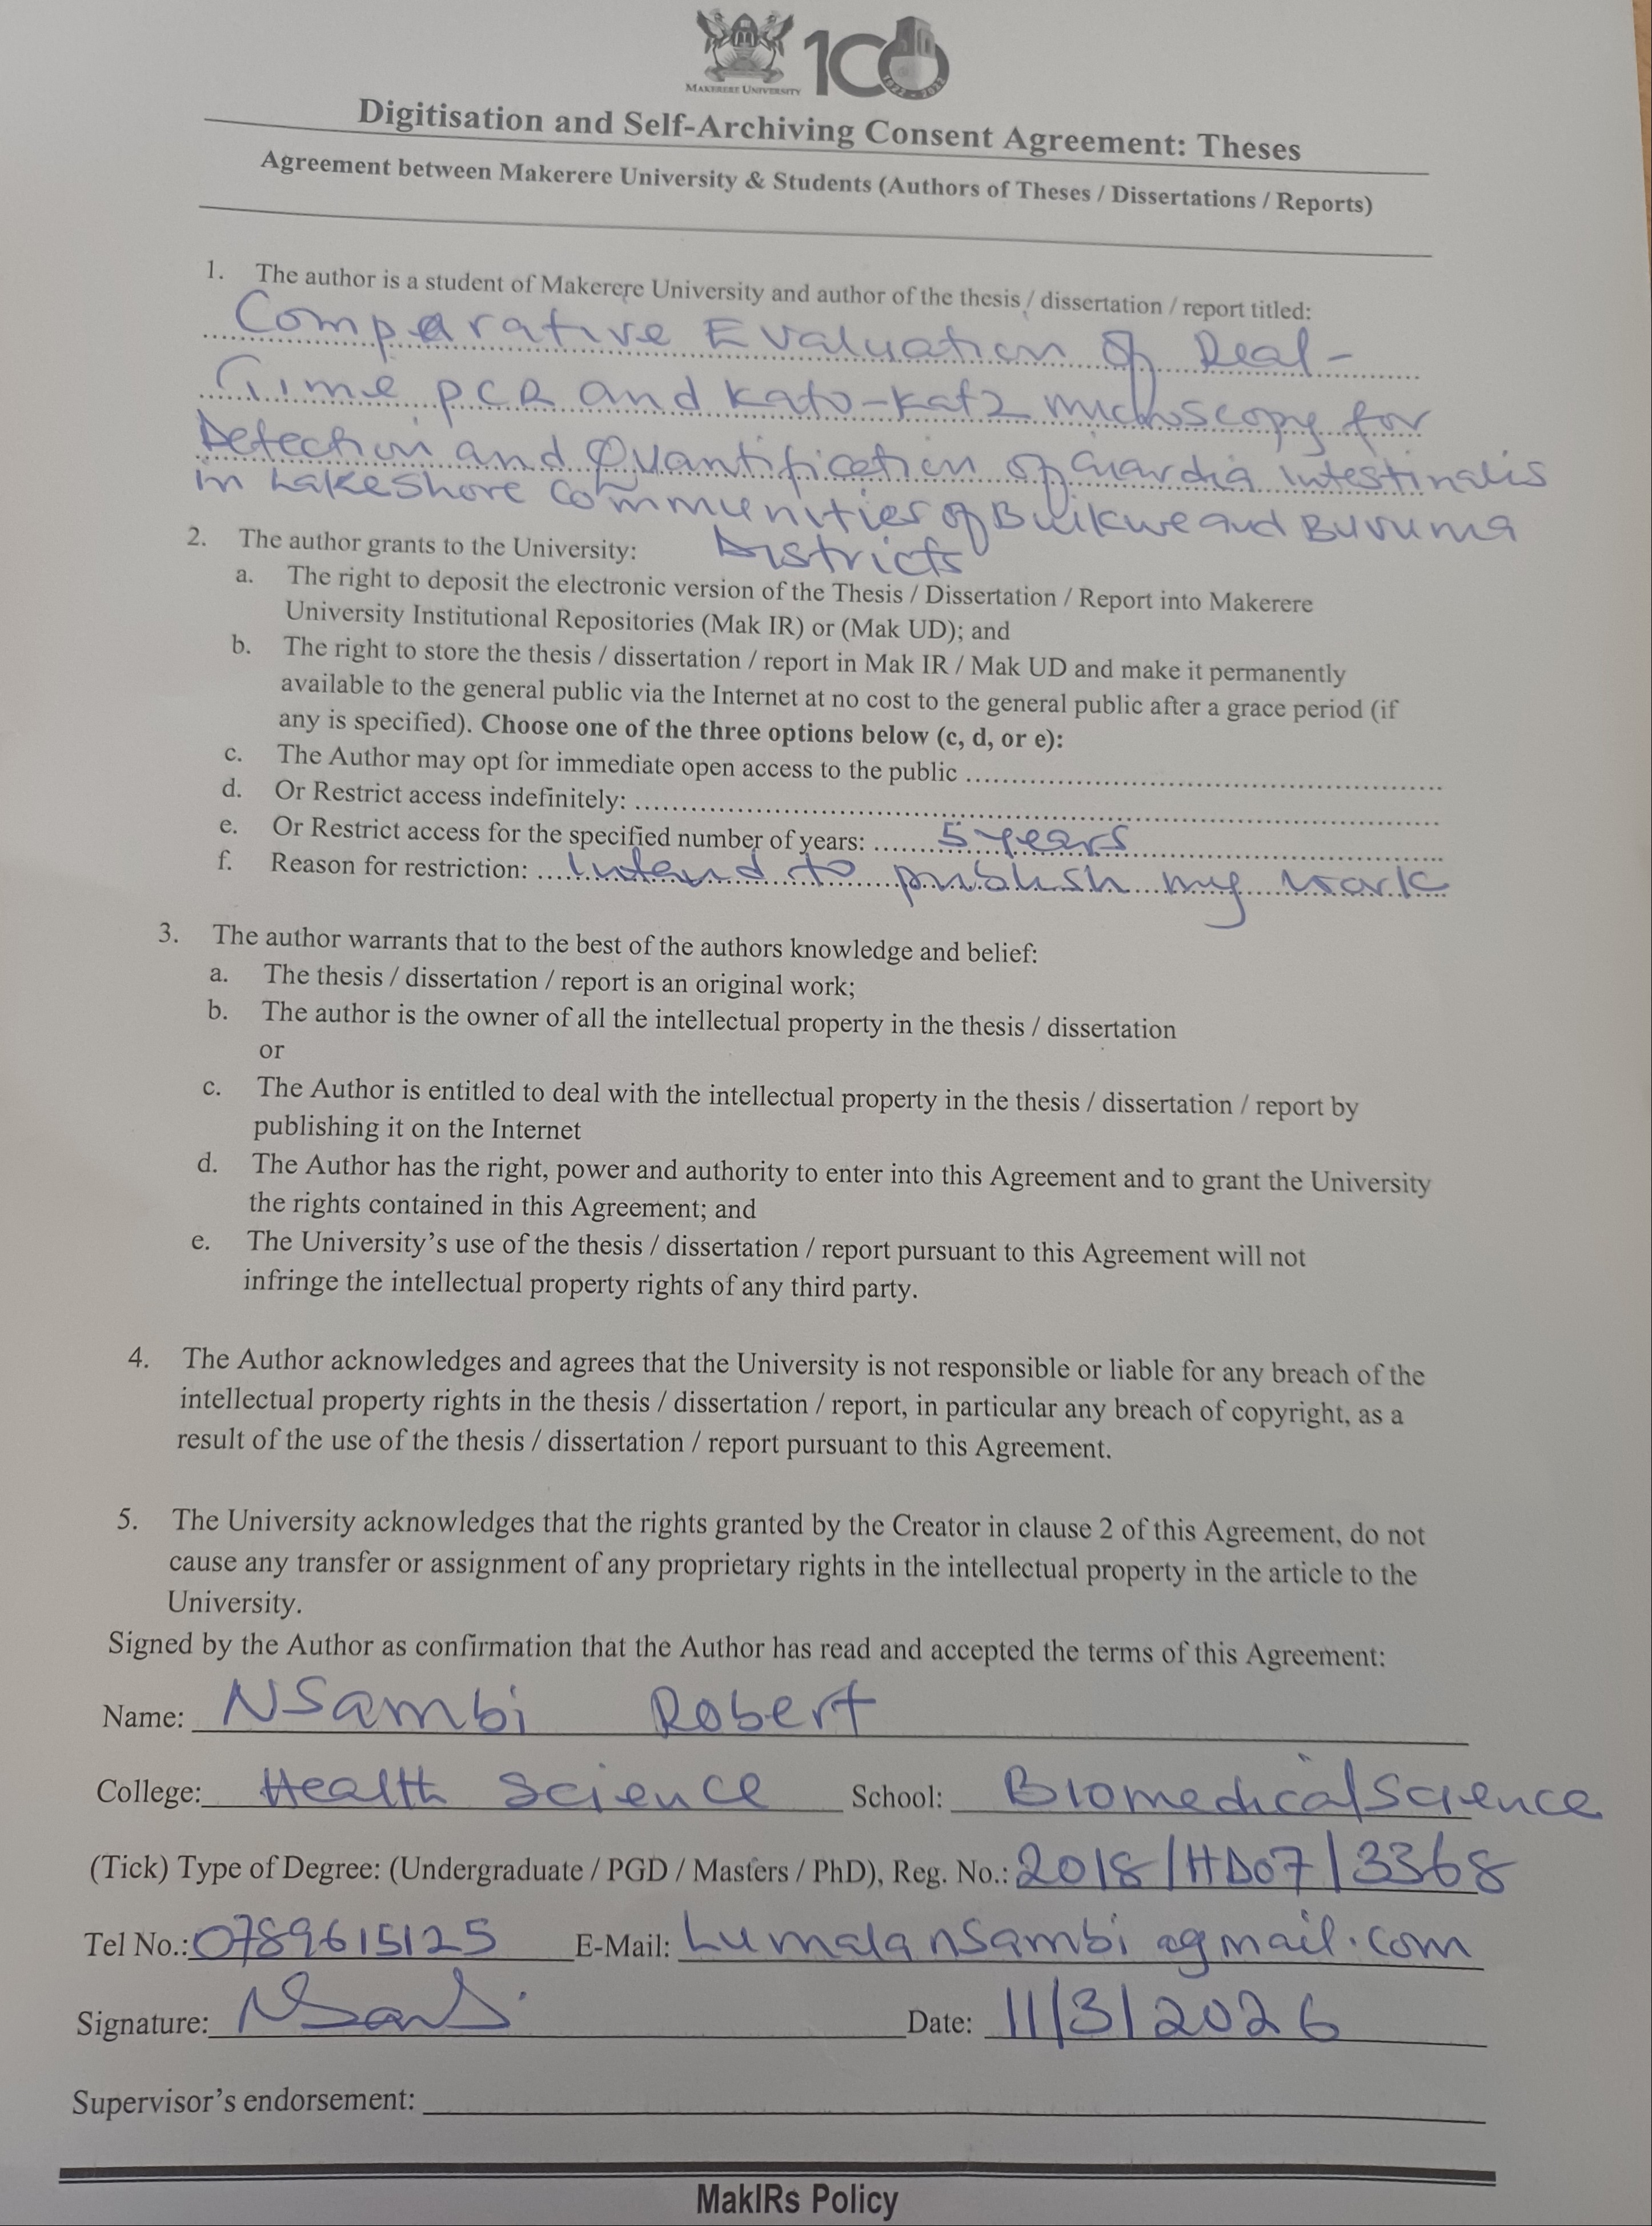 MAKERERE UNIVERSITY
100
1922 - 2022
Digitisation and Self-Archiving Consent Agreement: Theses
Agreement between Makerere University & Students (Authors of Theses / Dissertations / Reports)
1. The author is a student of Makerere University and author of the thesis / dissertation / report titled:
Comparative Evaluation of Real-
Time PCR and Kato-Katz microscopy for
Detection and Quantification of Giardia Intestinalis
in Lakeshore Communities of Buikwe and Buvuma
Districts
2. The author grants to the University:
a. The right to deposit the electronic version of the Thesis / Dissertation / Report into Makerere
University Institutional Repositories (Mak IR) or (Mak UD); and
b. The right to store the thesis / dissertation / report in Mak IR / Mak UD and make it permanently
available to the general public via the Internet at no cost to the general public after a grace period (if
any is specified). Choose one of the three options below (c, d, or e):
c. The Author may opt for immediate open access to the public
d. Or Restrict access indefinitely:
e. Or Restrict access for the specified number of years: 5 years
f. Reason for restriction: Intend to publish my work
3. The author warrants that to the best of the authors knowledge and belief:
a. The thesis / dissertation / report is an original work;
b. The author is the owner of all the intellectual property in the thesis / dissertation
or
c. The Author is entitled to deal with the intellectual property in the thesis / dissertation / report by
publishing it on the Internet
d. The Author has the right, power and authority to enter into this Agreement and to grant the University
the rights contained in this Agreement; and
e. The University's use of the thesis / dissertation / report pursuant to this Agreement will not
infringe the intellectual property rights of any third party.
4. The Author acknowledges and agrees that the University is not responsible or liable for any breach of the
intellectual property rights in the thesis / dissertation / report, in particular any breach of copyright, as a
result of the use of the thesis / dissertation / report pursuant to this Agreement.
5. The University acknowledges that the rights granted by the Creator in clause 2 of this Agreement, do not
cause any transfer or assignment of any proprietary rights in the intellectual property in the article to the
University.
Signed by the Author as confirmation that the Author has read and accepted the terms of this Agreement:
Name: NSambi Robert
College: Health Science School: Biomedical Science
(Tick) Type of Degree: (Undergraduate / PGD / Masters / PhD), Reg. No.: 2018/HD07/3368
Tel No.: 0789615125 E-Mail: Lumalansambi@gmail.com
Signature: Date: 11/3/2026
Supervisor's endorsement:
MakIRs Policy